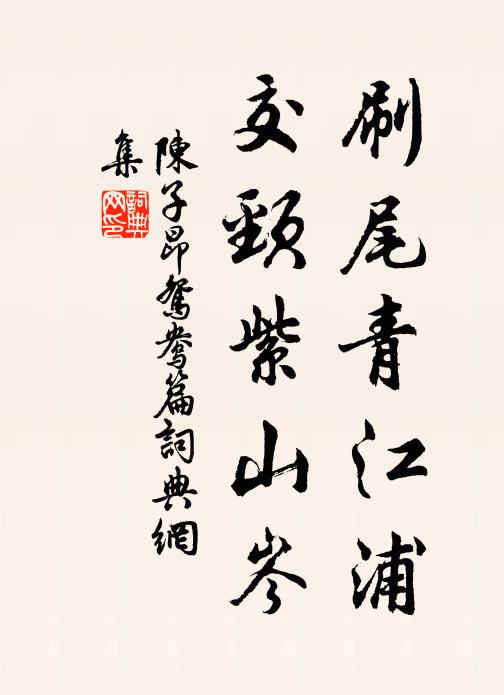 刷尾青江浦
交頸紫山岑
陳子昂鴛鴦篇詞典網
集
詞典网印